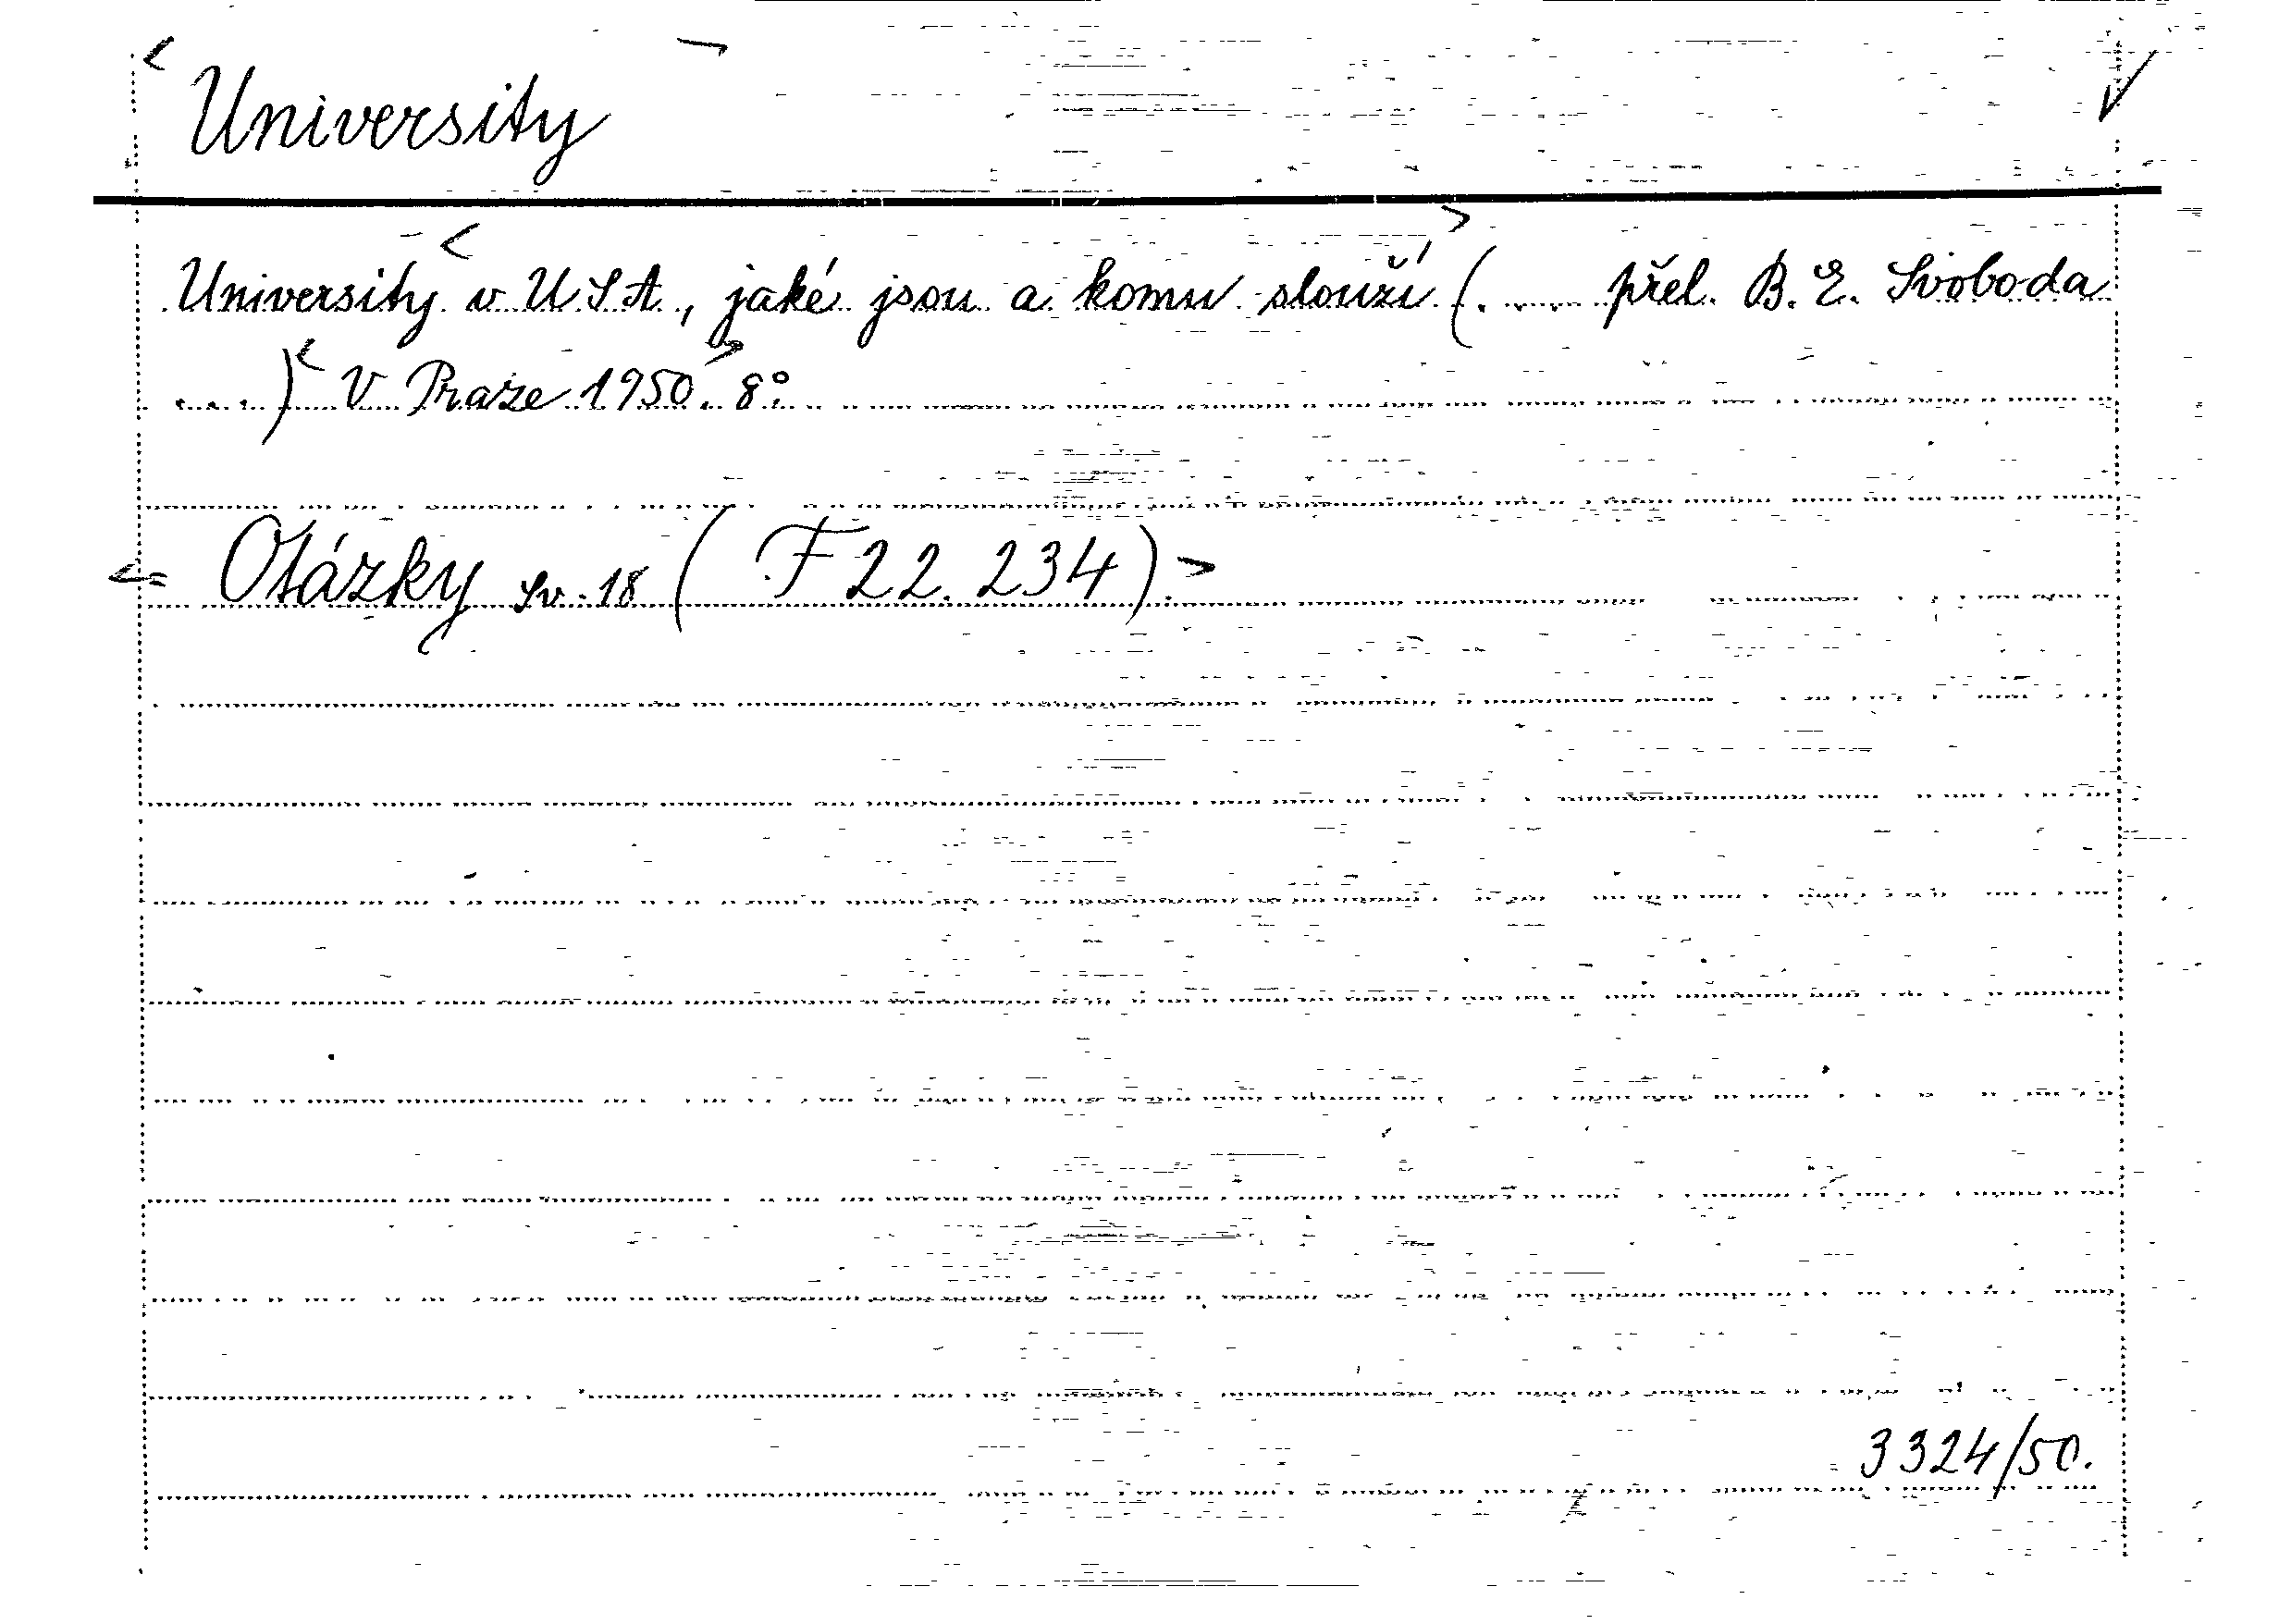 University
University v U.S.A., jaké jsou a komu slouží (. ... přel. B. E. Svoboda
...) V Praze 1950. 8°.
= Otázky sv. 18 (F 22.234).
3324/50.